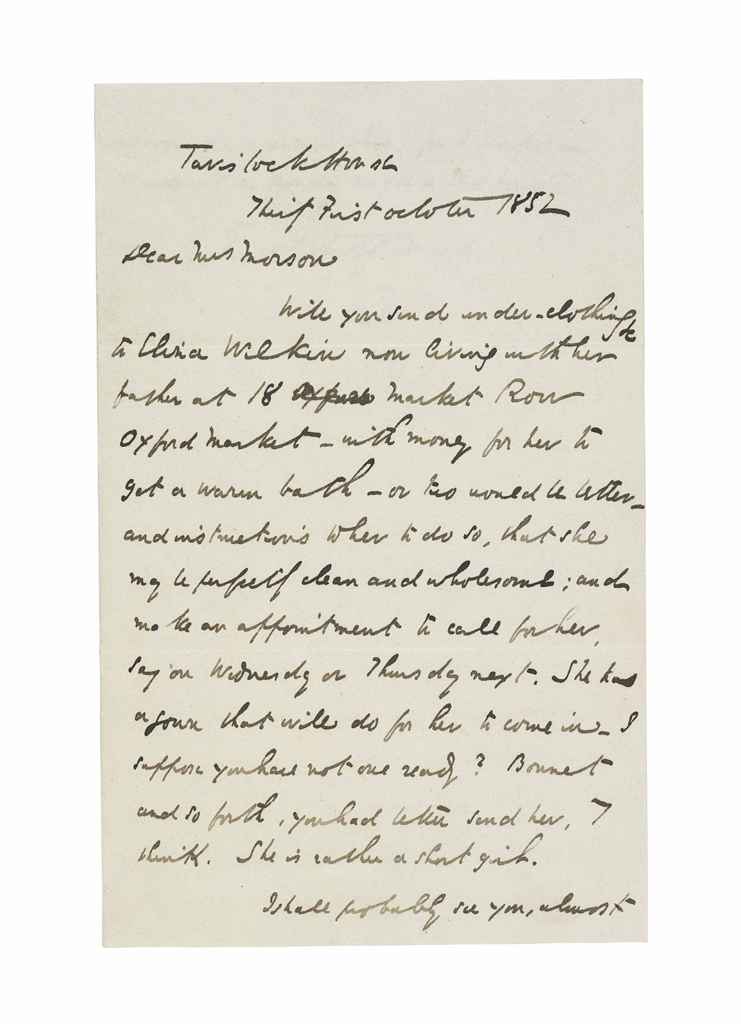 Tavistock House
Thirty First October 1852
Dear Mrs Morson
Will you send under-clothing &c
to Eliza Wilkin now living with her
father at 18 Market Row
Oxford Market – with money for her to
get a warm bath – or two would be better –
and instructions when to do so, that she
may be perfectly clean and wholesome; and
make an appointment to call for her,
say on Wednesday or Thursday next. She has
a gown that will do for her to come in – I
suppose you have not one ready? Bonnet
and so forth, you had better send her, I
think. She is rather a short girl.
I shall probably see you, almost